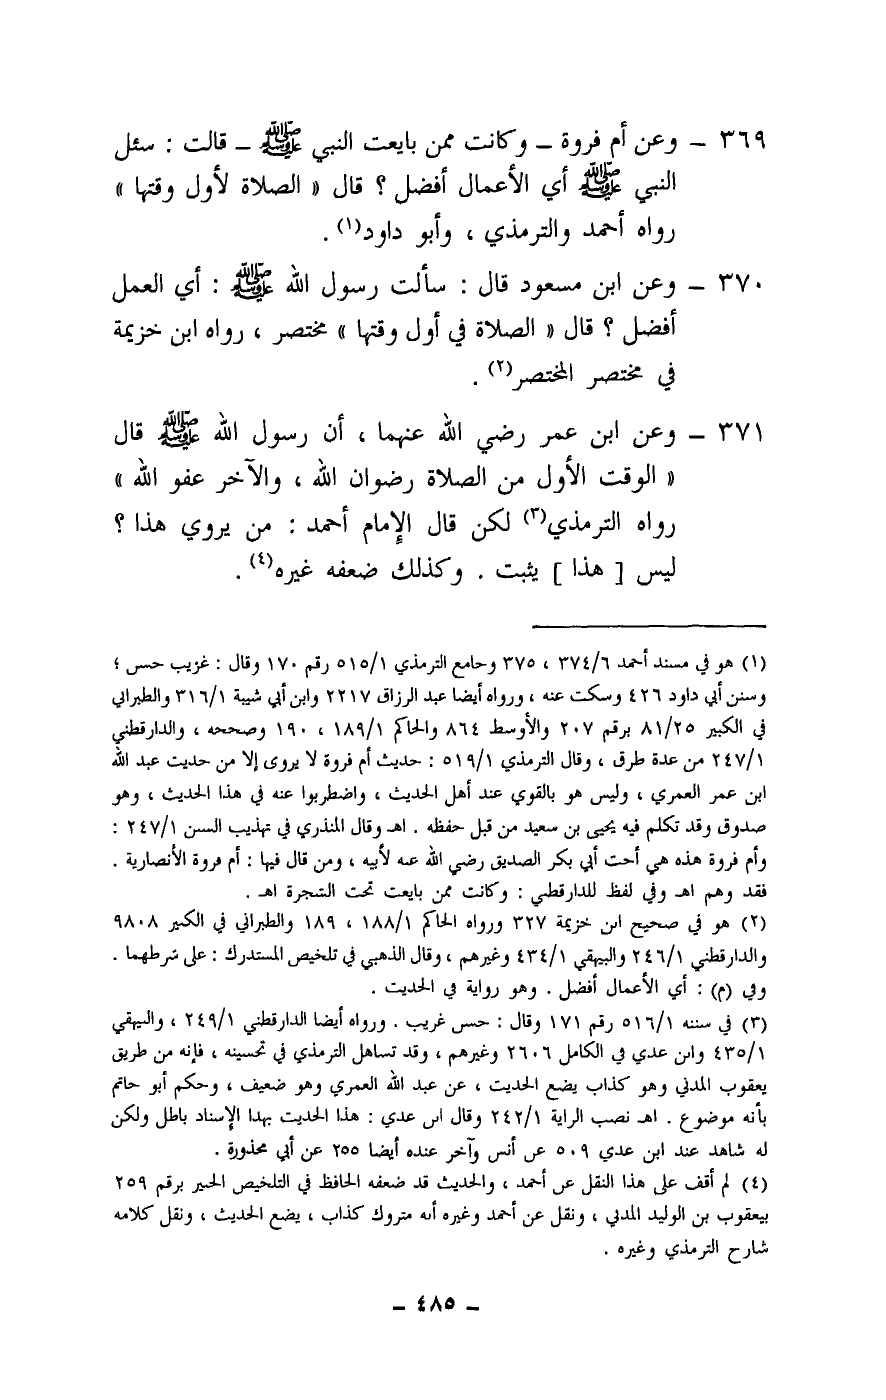 ٣٦٩ – وعن أم فروة – وكانت ممن بايعت النبي ﷺ – قالت : سئل
النبي ﷺ أي الأعمال أفضل ؟ قال « الصلاة لأول وقتها »
رواه أحمد والترمذي ، وأبو داود(١) .
٣٧٠ – وعن ابن مسعود قال : سألت رسول الله ﷺ : أي العمل
أفضل ؟ قال « الصلاة في أول وقتها » مختصر ، رواه ابن خزيمة
في مختصر المختصر(٢) .
٣٧١ – وعن ابن عمر رضي الله عنهما ، أن رسول الله ﷺ قال
« الوقت الأول من الصلاة رضوان الله ، والآخر عفو الله »
رواه الترمذي(٣) لكن قال الإمام أحمد : من يروي هذا ؟
ليس [ هذا ] يثبت . وكذلك ضعفه غيره(٤) .
(١) هو في مسند أحمد ٣٧٤/٦ ، ٣٧٥ وجامع الترمذي ٥١٥/١ رقم ١٧٠ وقال : غريب حسن ؛
وسنن أبي داود ٤٢٦ وسكت عنه ، ورواه أيضا عبد الرزاق ٢٢١٧ وابن أبي شيبة ٣١٦/١ والطبراني
في الكبير ٨١/٢٥ برقم ٢٠٧ والأوسط ٨٦٤ والحاكم ١٨٩/١ ، ١٩٠ وصححه ، والدارقطني
٢٤٧/١ من عدة طرق ، وقال الترمذي ٥١٩/١ : حديث أم فروة لا يروى إلا من حديث عبد الله
ابن عمر العمري ، وليس هو بالقوي عند أهل الحديث ، واضطربوا عنه في هذا الحديث ، وهو
صدوق وقد تكلم فيه يحيى بن سعيد من قبل حفظه . اهـ وقال المنذري في تهذيب السنن ٢٤٧/١ :
وأم فروة هذه هي أخت أبي بكر الصديق رضي الله عنه لأبيه ، ومن قال فيها : أم فروة الأنصارية .
فقد وهم اهـ وفي لفظ للدارقطني : وكانت ممن بايعت تحت الشجرة اهـ .
(٢) هو في صحيح ابن خزيمة ٣٢٧ ورواه الحاكم ١٨٨/١ ، ١٨٩ والطبراني في الكبير ٩٨٠٨
والدارقطني ٢٤٦/١ والبيهقي ٤٣٤/١ وغيرهم ، وقال الذهبي في تلخيص المستدرك : على شرطهما .
وفي (م) : أي الأعمال أفضل . وهو رواية في الحديث .
(٣) في سننه ٥١٦/١ رقم ١٧١ وقال : حسن غريب . ورواه أيضا الدارقطني ٢٤٩/١ ، والبيهقي
٤٣٥/١ وابن عدي في الكامل ٢٦٠٦ وغيرهم ، وقد تساهل الترمذي في تحسينه ، فإنه من طريق
يعقوب المدني وهو كذاب يضع الحديث ، عن عبد الله العمري وهو ضعيف ، وحكم أبو حاتم
بأنه موضوع . اهـ نصب الراية ٢٤٢/١ وقال ابن عدي : هذا الحديث بهذا الإسناد باطل ولكن
له شاهد عند ابن عدي ٥٠٩ عن أنس وآخر عنده أيضا ٢٥٥ عن أبي محذورة .
(٤) لم أقف على هذا النقل عن أحمد ، والحديث قد ضعفه الحافظ في التلخيص الحبير برقم ٢٥٩
بيعقوب بن الوليد المدني ، ونقل عن أحمد وغيره أنه متروك كذاب ، يضع الحديث ، ونقل كلامه
شارح الترمذي وغيره .
– ٤٨٥ –